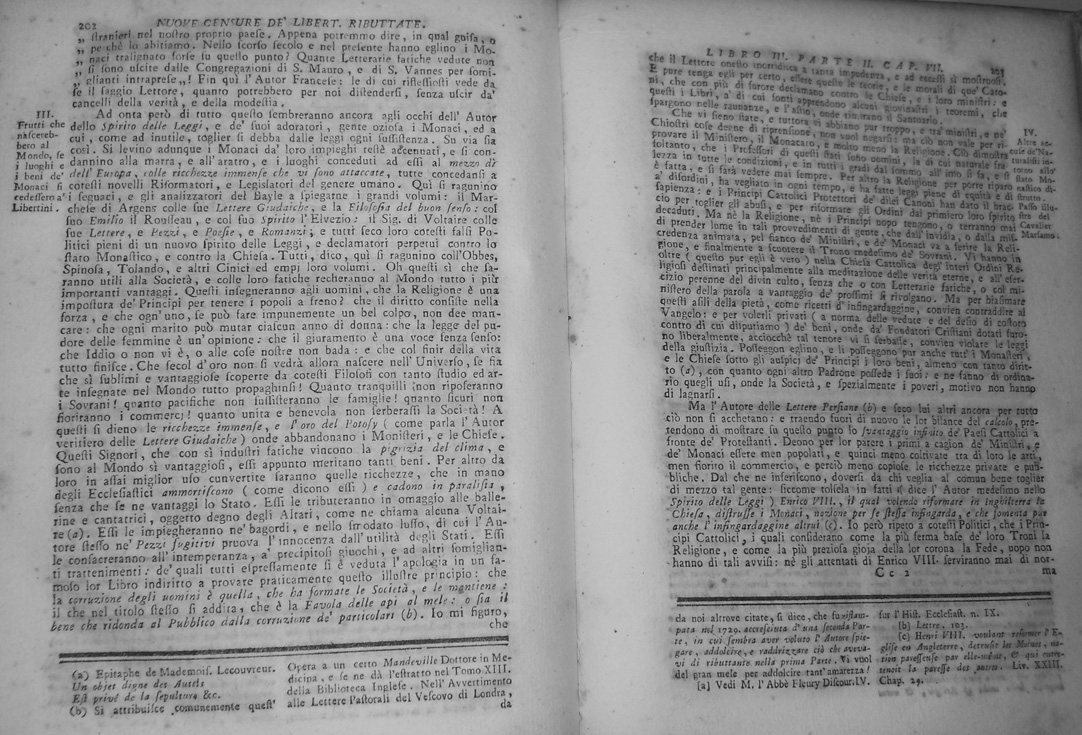 202 NUOVE CENSURE DE' LIBERT. RIBUTTATE.
„ ſtranieri nel noſtro proprio paeſe. Appena potremmo dire, in qual guiſa, o
„ pe chè lo abitiamo. Nello ſcorſo ſecolo e nel preſente hanno eglino i Mo-
„ naci tralignato forſe ſu queſto punto? Quante Letterarie fatiche vedute non
„ ſi ſono uſcite dalle Congregazioni di S. Mauro, e di S. Vannes per ſomi-
„ glianti intrapreſe„! Fin quì l'Autor Franceſe: le di cui rifleſſioni vede da
ſe il ſaggio Lettore, quanto potrebbero per noi diſtenderſi, ſenza uſcir da'
cancelli della verità, e della modeſtia.
III.
Frutti che
naſcereb-
bero al
Mondo, ſe
i luoghi e
i beni de'
Monaci ſi
cedeſſero a'
Libertini.
Ad onta però di tutto queſto ſembreranno ancora agli occhi dell'Autor
dello Spirito delle Leggi, e de' ſuoi adoratori, gente ozioſa i Monaci, ed a
cui, come ad inutile, toglier ſi debba dalle leggi ogni ſuſſiſtenza. Su via ſia
così. Si levino adunque i Monaci da' loro impieghi teſtè accennati, e ſi con-
dannino alla marra, e all'aratro, e i luoghi conceduti ad eſſi al mezzo dì
dell'Europa, colle ricchezze immenſe che vi ſono attaccate, tutte concedanſi a
coteſti novelli Riformatori, e Legislatori del genere umano. Quì ſi ragunino
i ſeguaci, e gli analizzatori del Bayle a ſpiegarne i grandi volumi: il Mar-
cheſe di Argens colle ſue Lettere Giudaiche, e la Filoſofia del buon ſenſo: col
ſuo Emilio il Rouſſeau, e col ſuo Spirito l'Elvezio: il Sig. di Voltaire colle
ſue Lettere, e Pezzi, e Poeſie, e Romanzi; e tutti ſeco loro coteſti falſi Po-
litici pieni di un nuovo ſpirito delle Leggi, e declamatori perpetui contro lo
ſtato Monaſtico, e contro la Chieſa. Tutti, dico, quì ſi ragunino coll'Obbes,
Spinoſa, Tolando, e altri Cinici ed empj loro volumi. Oh queſti sì che ſa-
ranno utili alla Società, e colle loro fatiche recheranno al Mondo tutto i più
importanti vantaggi. Queſti inſegneranno agli uomini, che la Religione è una
impoſtura de' Principi per tenere i popoli a freno? che il diritto conſiſte nella
forza, e che ogn'uno, ſe può fare impunemente un bel colpo, non dee man-
care: che ogni marito può mutar ciaſcun anno di donna: che la legge del pu-
dore delle femmine è un'opinione: che il giuramento è una voce ſenza ſenſo:
che Iddio o non vi è, o alle coſe noſtre non bada: e che col finir della vita
tutto finiſce. Che ſecol d'oro non ſi vedrà allora naſcere nell'Univerſo, ſe fia
che sì ſublimi e vantaggioſe ſcoperte da coteſti Filoſofi con tanto ſtudio ed ar-
te inſegnate nel Mondo tutto propaghinſi! Quanto tranquilli non ripoſeranno
i Sovrani! quanto pacifiche non ſuſſiſteranno le famiglie! quanto ſicuri non
fioriranno i commercj! quanto unita e benevola non ſerberaſſi la Società! A
queſti ſi dieno le ricchezze immenſe, e l'oro del Potoſy (come parla l'Autor
veritiero delle Lettere Giudaiche) onde abbandonano i Moniſteri, e le Chieſe.
Queſti Signori, che con sì induſtri fatiche vincono la pigrizia del clima, e
ſono al Mondo sì vantaggioſi, eſſi appunto meritano tanti beni. Per altro da
loro in aſſai miglior uſo convertite ſaranno quelle ricchezze, che in mano
degli Eccleſiaſtici ammortiſcono (come dicono eſſi) e cadono in paraliſia,
ſenza che ſe ne vantaggi lo Stato. Eſſi le tributeranno in omaggio alle balle-
rine e cantatrici, oggetto degno degli Altari, come ne chiama alcuna Voltai-
re (a). Eſſi le impiegheranno ne' bagordi, e nello ſmodato luſſo, di cui l'Au-
tore ſteſſo ne' Pezzi fugitivi pruova l'innocenza dall'utilità degli Stati. Eſſi
le conſacreranno all'intemperanza, a' precipitoſi giuochi, e ad altri ſomiglian-
ti trattenimenti: de' quali tutti eſpreſſamente ſi è veduta l'apologia in un fa-
moſo lor Libro indiritto a provare praticamente queſto illuſtre principio: che
la corruzione degli uomini è quella, che ha formate le Società, e le mantiene:
il che nel titolo ſteſſo ſi addita, che è la Favola delle api al mele: o ſia il
bene che ridonda al Pubblico dalla corruzione de' particolari (b). Io mi figuro,
che
(a) Epitaphe de Mademoiſ. Lecouvreur.
Un objet digne des Autels
Eſt privé de la ſepulture &c.
(b) Si attribuiſce comunemente queſt'
Opera a un certo Mandeville Dottore in Me-
dicina, e ſe ne dà l'eſtratto nel Tomo XIII.
della Biblioteca Ingleſe. Nell'Avvertimento
alle Lettere Paſtorali del Veſcovo di Londra,
da
LIBRO III. PARTE II. CAP. VII. 203
che il Lettore oneſto inorridirà a tanta impudenza, e ad ecceſſi sì moſtruoſi.
E pure tenga egli per certo, eſſere queſte le teorie, e le morali di que' Cato-
ni, che con più di furore declamano contro le Chieſe, e i loro miniſtri: e
queſti i Libri, a' di cui fonti apprendono alcuni giovinaſtri i teoremi, che
ſpargono nelle raunanze, e l'aſtio, onde rimirano il Santuario.
IV.
Che vi ſieno ſtate, e tuttora vi abbiano pur troppo, e tra' miniſtri, e ne'
Chioſtri coſe degne di riprenſione, non vuol negarſi: ma ciò non vale per ri-
provare il Miniſtero, il Monacato, e molto meno la Religione. Ciò dimoſtra
ſoltanto, che i Profeſſori di queſti ſtati ſono uomini, la di cui naturale fra-
lezza in tutte le condizioni, e in tutti i gradi dal ſommo all'imo ſi fa, e ſi
è fatta, e ſi farà vedere mai ſempre. Per altro la Religione per porre riparo
a' diſordini, ha vegliato in ogni tempo, e ha fatte leggi piene di equità e di
ſapienza: e i Principi Cattolici Protettori de' dilei Canoni han dato il brac-
cio per toglier gli abuſi, e per riformare gli Ordini dal primiero loro ſpirito
decaduti. Ma nè la Religione, nè i Principi uopo tengono, o terranno mai
di prender lume in tali provvedimenti di gente, che dall'invidia, o dalla miſ-
credenza animata, pel fianco de' Miniſtri, e de' Monaci va a ferire la Reli-
gione, e finalmente a ſcuotere il Trono medeſimo de' Sovrani. Vi hanno in
oltre (queſto pur egli è vero) nella Chieſa Cattolica degl'interi Ordini Re-
ligioſi deſtinati principalmente alla meditazione delle verità eterne, e all'eſer-
cizio perenne del divin culto, ſenza che o con Letterarie fatiche, o col mi-
niſtero della parola a vantaggio de' proſſimi ſi rivolgano. Ma per biaſimare
queſti aſili della pietà, come ricetti d'infingardaggine, convien contraddire al
Vangelo: e per volerli privati (a norma delle vedute e del deſio di coſtoro
contro di cui diſputiamo) de' beni, onde da' Fondatori Criſtiani dotati furo-
no liberalmente, acciocchè tal tenore vi ſi ſerbaſſe, convien violare le leggi
della giuſtizia. Poſſeggon eglino, e li poſſeggono pur anche tutt'i Monaſteri,
e le Chieſe ſotto gli auſpicj de' Principi i loro beni, almeno con tanto dirit-
to (a), con quanto ogni altro Padrone poſſede i ſuoi: e ne fanno di ordina-
rio quegli uſi, onde la Società, e ſpezialmente i poveri, motivo non hanno
di lagnarſi.
Ma l'Autore delle Lettere Perſiane (b) e ſeco lui altri ancora per tutto
ciò non ſi acchetano: e traendo fuori di nuovo le lor bilance del calcolo, pre-
tendono di moſtrare ſu queſto punto lo ſvantaggio infinito de' Paeſi Cattolici a
fronte de' Proteſtanti. Deono per lor parere i primi a cagion de' Miniſtri, e
de' Monaci eſſere men popolati, e quinci meno coltivate tra di loro le arti,
men fiorito il commercio, e perciò meno copioſe le ricchezze private e pub-
bliche. Dal che ne inferiſcono, doverſi da chi veglia al comun bene toglier
di mezzo tal gente: ſiccome tolſela in fatti (dice l'Autor medeſimo nello
Spirito delle Leggi) Enrico VIII, il qual volendo riformare in Inghilterra la
Chieſa, diſtruſſe i Monaci, nozione per ſe ſteſſa infingarda, e che fomenta pur
anche l'infingardaggine altrui (c). Io però ripeto a coteſti Politici, che i Prin-
cipi Cattolici, i quali conſiderano come la più ferma baſe de' loro Troni la
Religione, e come la più prezioſa gioja della lor corona la Fede, uopo non
hanno di tali avviſi: nè gli attentati di Enrico VIII. ſerviranno mai di nor-
Cc 2 ma
da noi altrove citate, ſi dice, che fu riſtam-
pata nel 1729. accreſciuta d'una ſeconda Par-
te, in cui ſembra aver voluto l'Autore ſpie-
gare, addolcire, e raddrizzare ciò che aveva-
vi di ributtante nella prima Parte. Vi vuol
del gran mele per addolcire tant'amarezza!
(a) Vedi M. l'Abbè Fleury Diſcour. IV.
ſur l'Hiſt. Eccleſiaſt. n. IX.
(b) Lettre. 103.
(c) Henri VIII. voulant reformer l'E-
gliſe en Angleterre, detruiſit les Moines, na-
tion pareſſeuſe par elle-même, & qui entre-
tenoit la pareſſe des autres. Liv. XXIII.
Chap. 29.